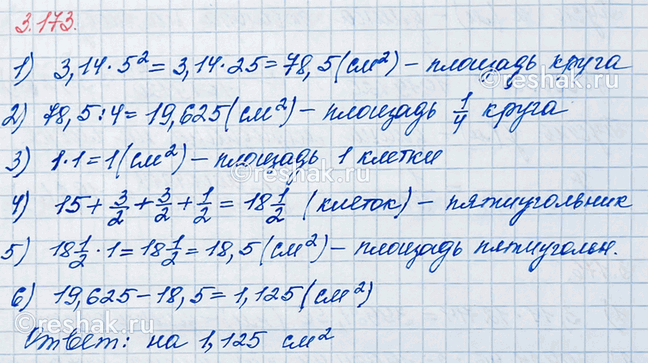 3.173.
1) 3,14·5² = 3,14·25 = 78,5 (см²) – площадь круга
2) 78,5:4 = 19,625 (см²) – площадь 1/4 круга
3) 1·1 = 1 (см²) – площадь 1 клетки
4) 15 + 3/2 + 3/2 + 1/2 = 18 1/2 (клеток) – пятиугольник
5) 18 1/2 · 1 = 18 1/2 = 18,5 (см²) – площадь пятиугольн.
6) 19,625 – 18,5 = 1,125 (см²)
Ответ: на 1,125 см²
reshak.ru
reshak.ru
reshak.ru